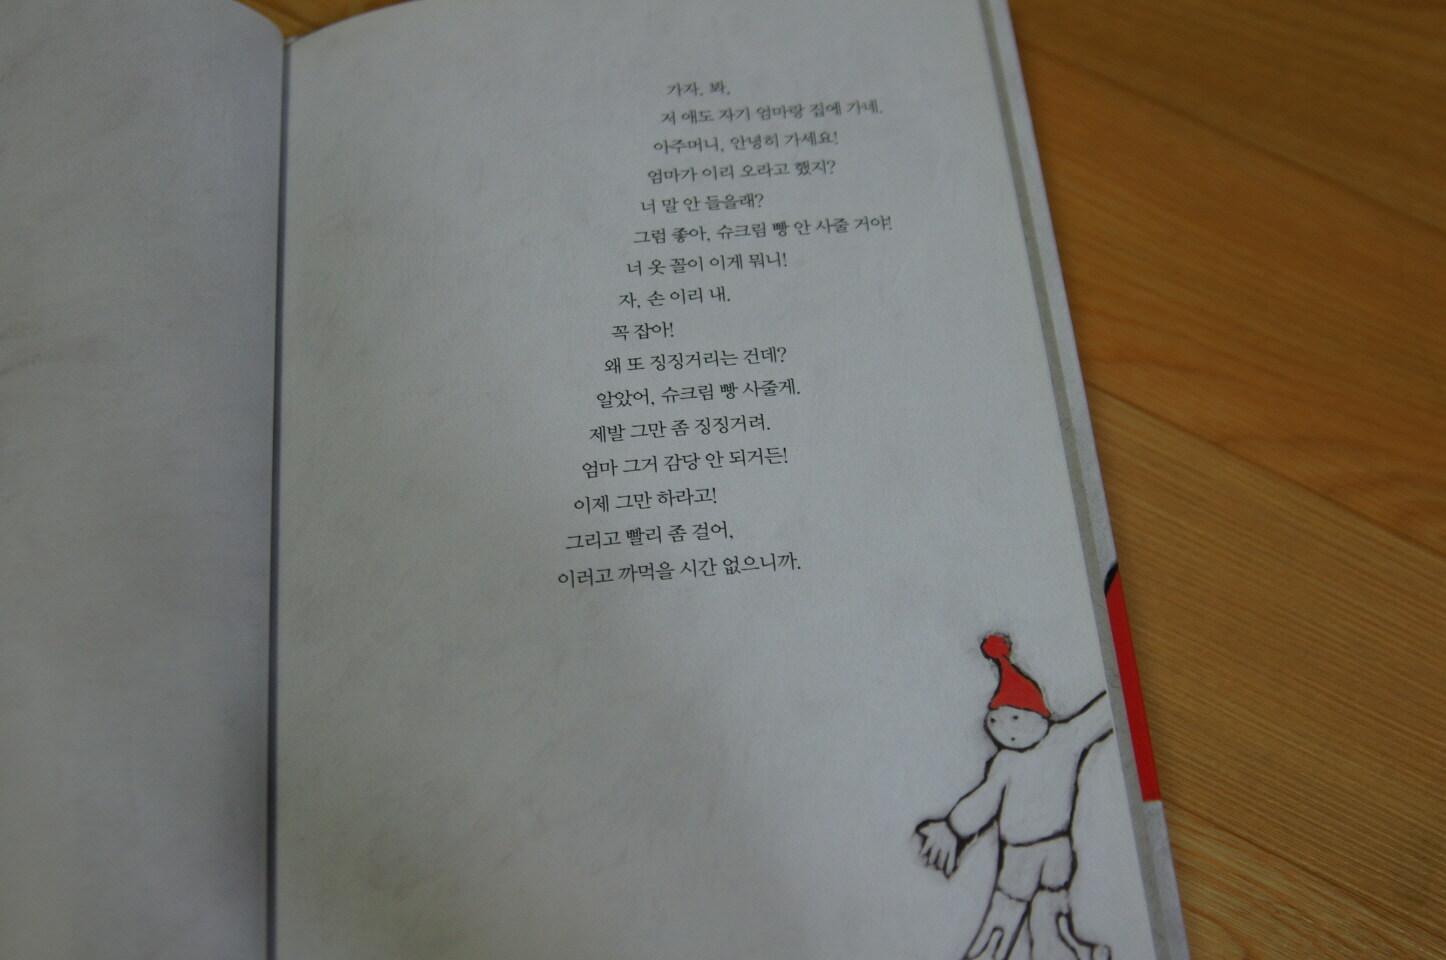 가자, 봐,
저 애도 자기 엄마랑 집에 가네.
아주머니, 안녕히 가세요!
엄마가 이리 오라고 했지?
너 말 안 들을래?
그럼 좋아, 슈크림 빵 안 사줄 거야!
너 옷 꼴이 이게 뭐니!
자, 손 이리 내.
꼭 잡아!
왜 또 징징거리는 건데?
알았어, 슈크림 빵 사줄게.
제발 그만 좀 징징거려.
엄마 그거 감당 안 되거든!
이제 그만 하라고!
그리고 빨리 좀 걸어,
이러고 까먹을 시간 없으니까.